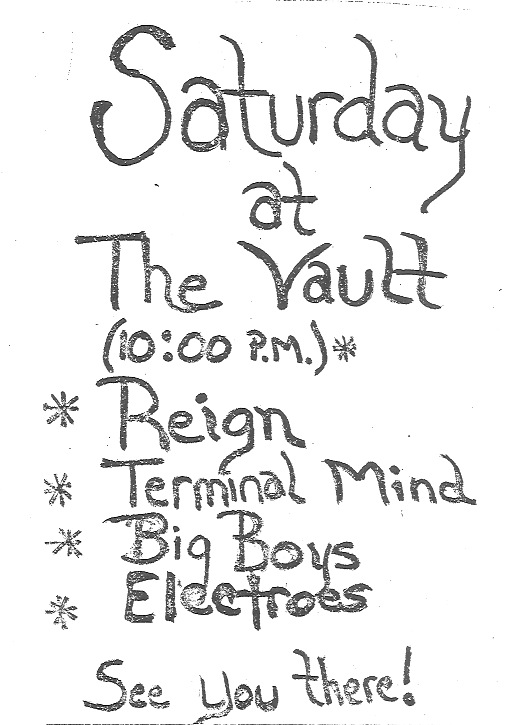 Saturday
at
The Vault
(10:00 P.M.)*
* Reign
* Terminal Mind
* Big Boys
* Electroes
See you there!